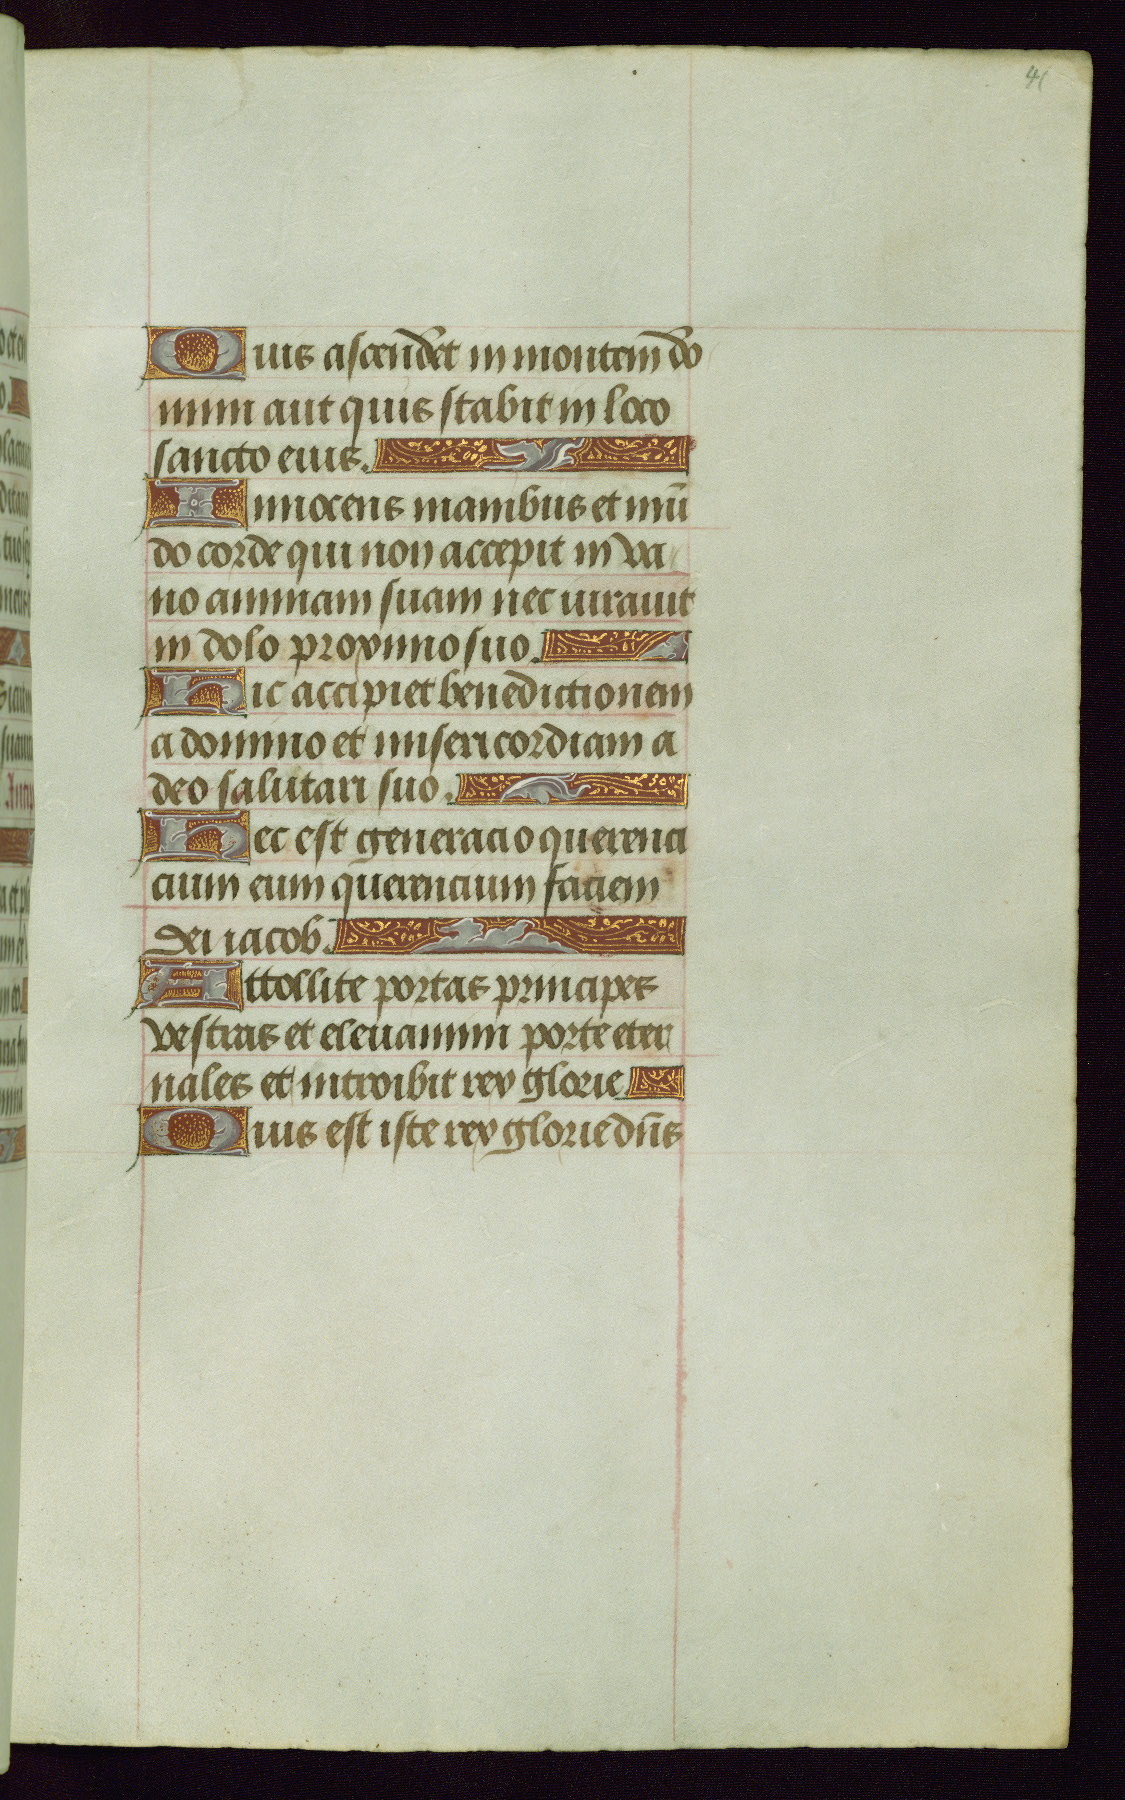 41
Quis ascendet in montem̄ do
mini aut quis stabit in loco
sancto eius.
Innocens manibus et mū
do corde qui non accepit in va
no animam suam nec iuravit
in dolo proximo suo.
Hic accipiet benedictionem
a domino et misericordiam a
deo salutari suo.
Hec est generacio querenci
cium eum querencium faciem
dei iacob.
Attollite portas principes
vestras et elevamini porte eter
nales et introibit rex glorie
Quis est iste rex glorie dn̄s